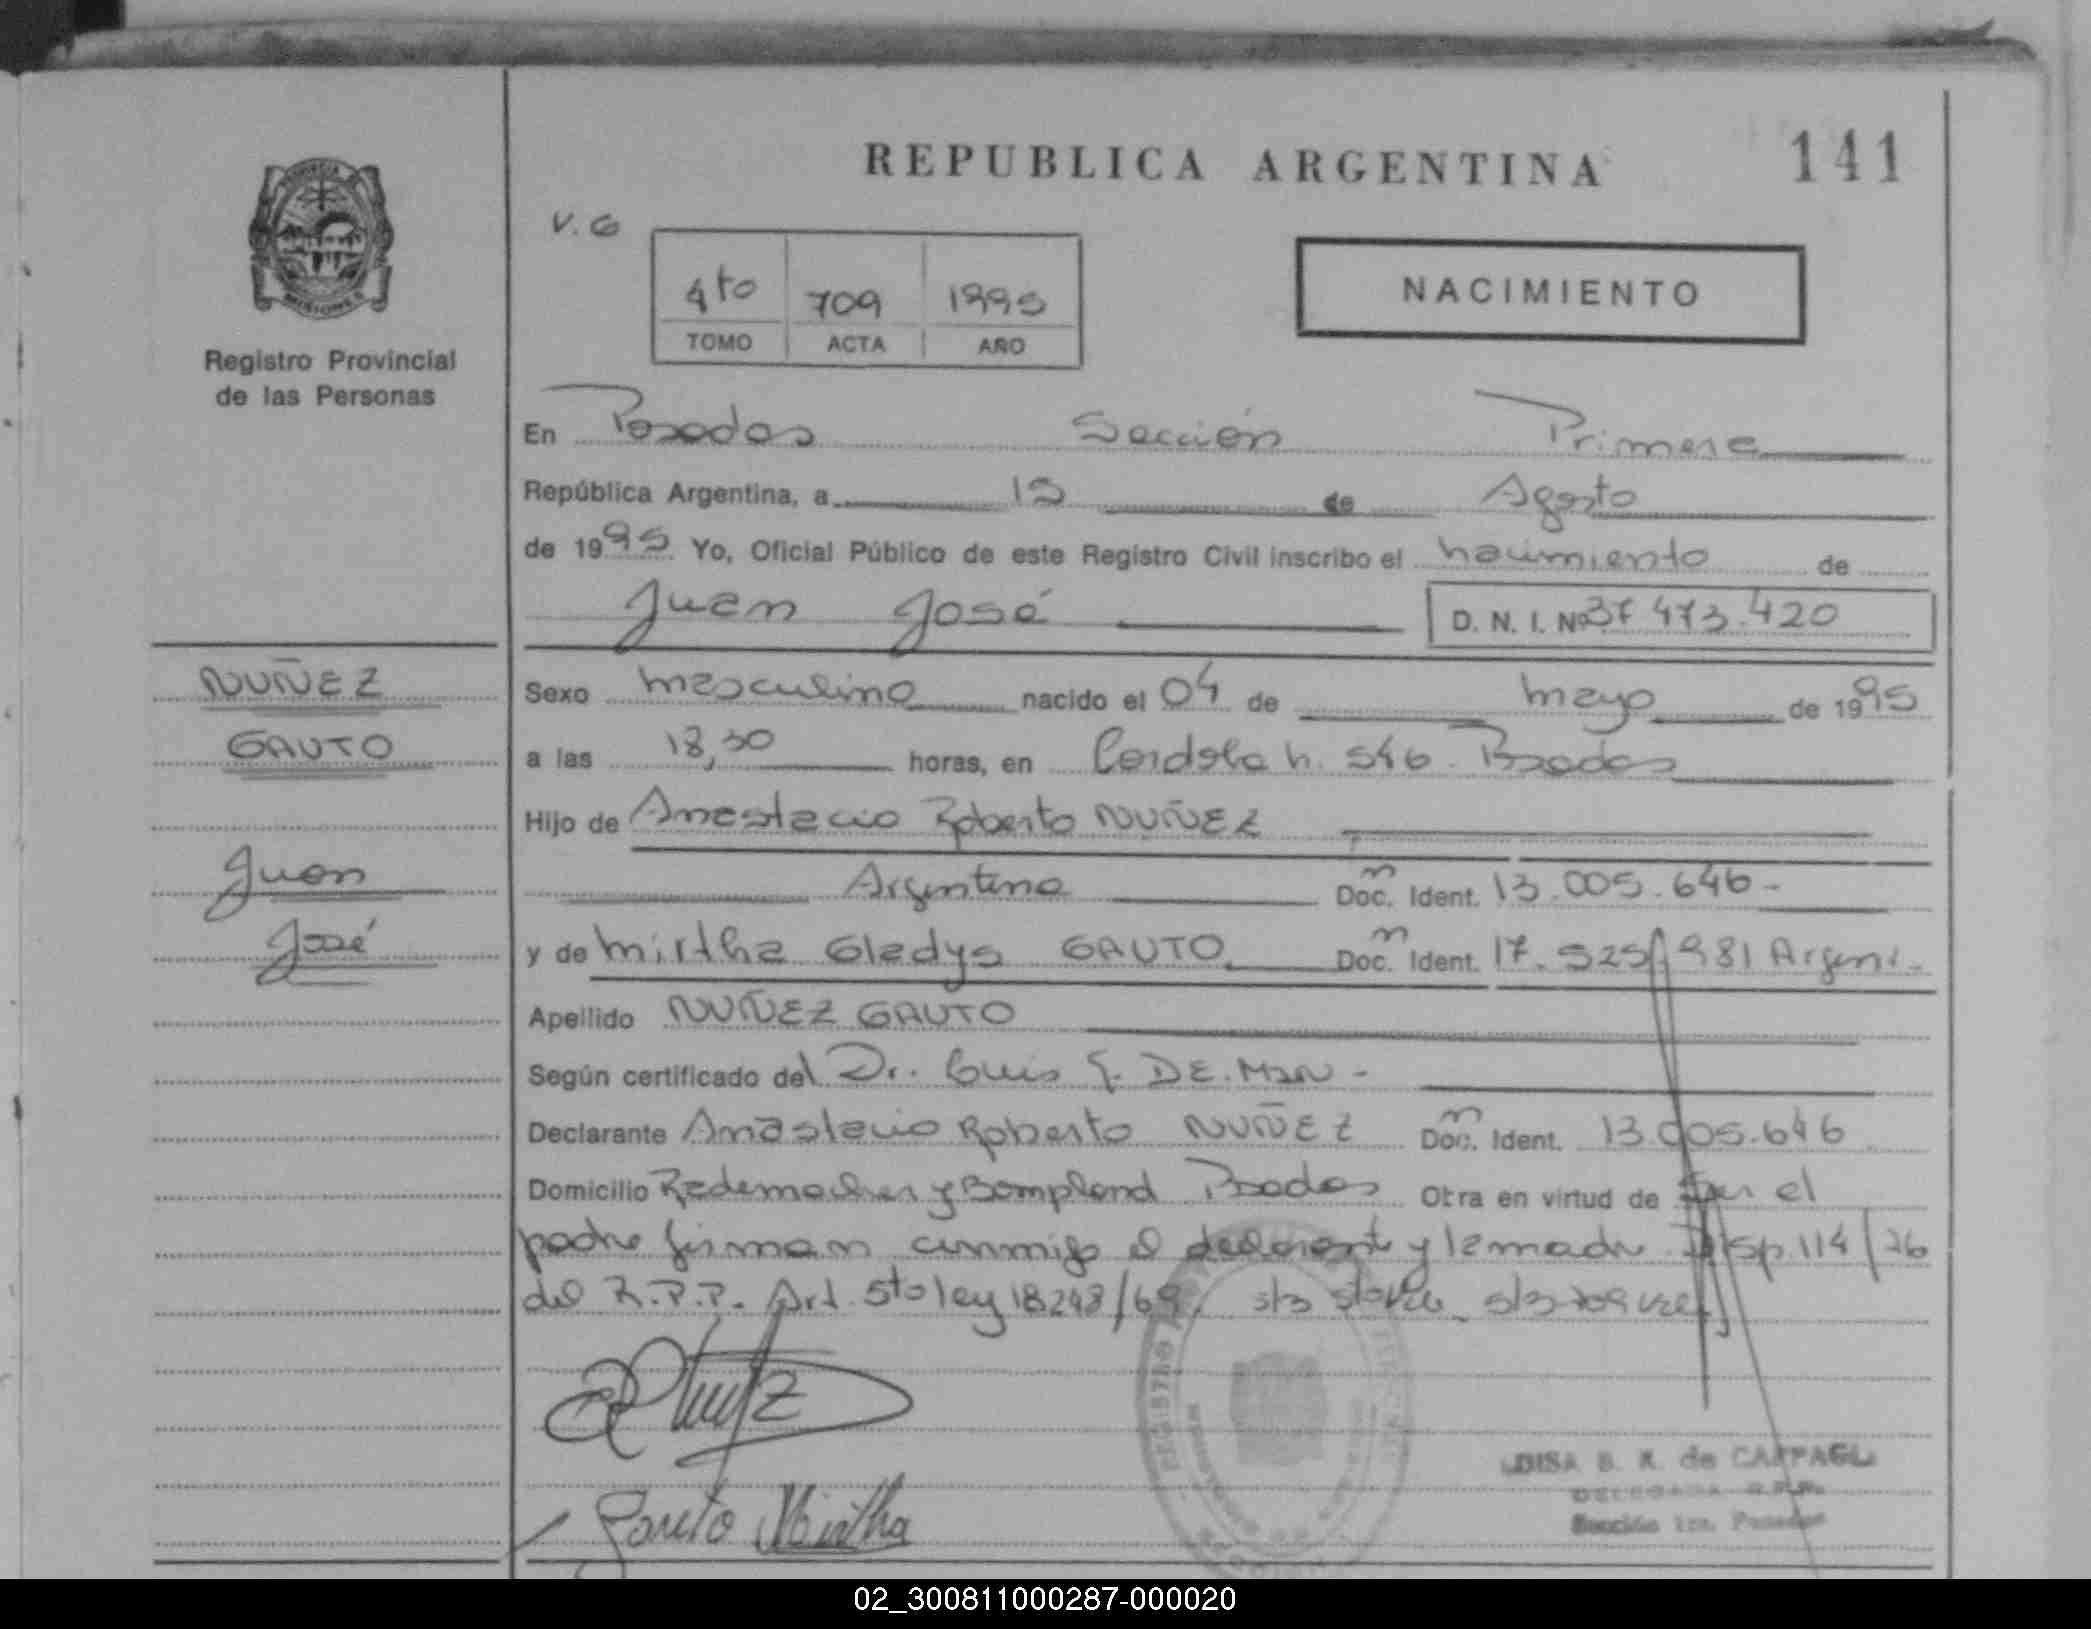 REPUBLICA ARGENTINA
141
V. G
4to 709 1995
TOMO ACTA AÑO
NACIMIENTO
PROVINCIA
MISIONES
Registro Provincial
de las Personas
En Posadas Sección Primera
República Argentina, a 15 de Agosto
de 1995 Yo, Oficial Público de este Registro Civil inscribo el nacimiento de
Juan José D. N. I. Nº 37 473.420
NUÑEZ
GAUTO
Juan
José
Sexo masculino nacido el 04 de mayo de 1995
a las 18,30 horas, en Cordoba n. 546. Posadas
Hijo de Anastacio Roberto NUÑEZ
Argentino Doc. Ident. 13.005.646-
y de Mirtha Gladys GAUTO Doc. Ident. 17.525.981 Argent.
Apellido NUÑEZ GAUTO
Según certificado del Dr. Luis DE.
Declarante Anastacio Roberto NUÑEZ Doc. Ident. 13.005.646
Domicilio Rademacher y Bompland Posadas Otra en virtud de ser el
padre firman conmigo el declarante y la madre Disp. 114/76
del R.P.P. Art. 5to ley 18248/69
Gauto Mirtha
REGISTRO
de CARPAGL
DELEGADA R.P.P.
Sección 1ra. Posadas
02_300811000287-000020